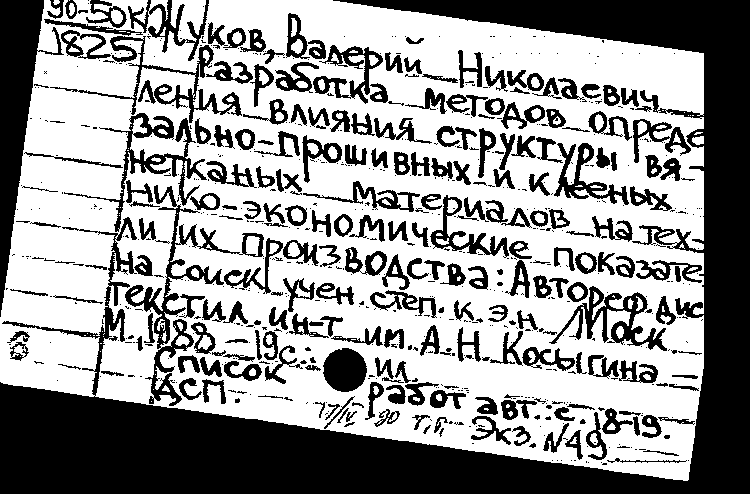 90-50к
1825
Жуков, Валерий Николаевич
Разработка методов опреде
ления влияния структуры вя-
зально-прошивных и клееных
нетканых материалов на тех-
нико-экономические показате
ли их производства: Автореф. дис
на соиск учен. степ. к. э. н. /Моск.
текстил. ин-т им. А. Н. Косыгина —
М., 1988 – 19с.: ил.
Список работ авт.: с. 18-19.
ДСП. Экз. №49
17/IV 90